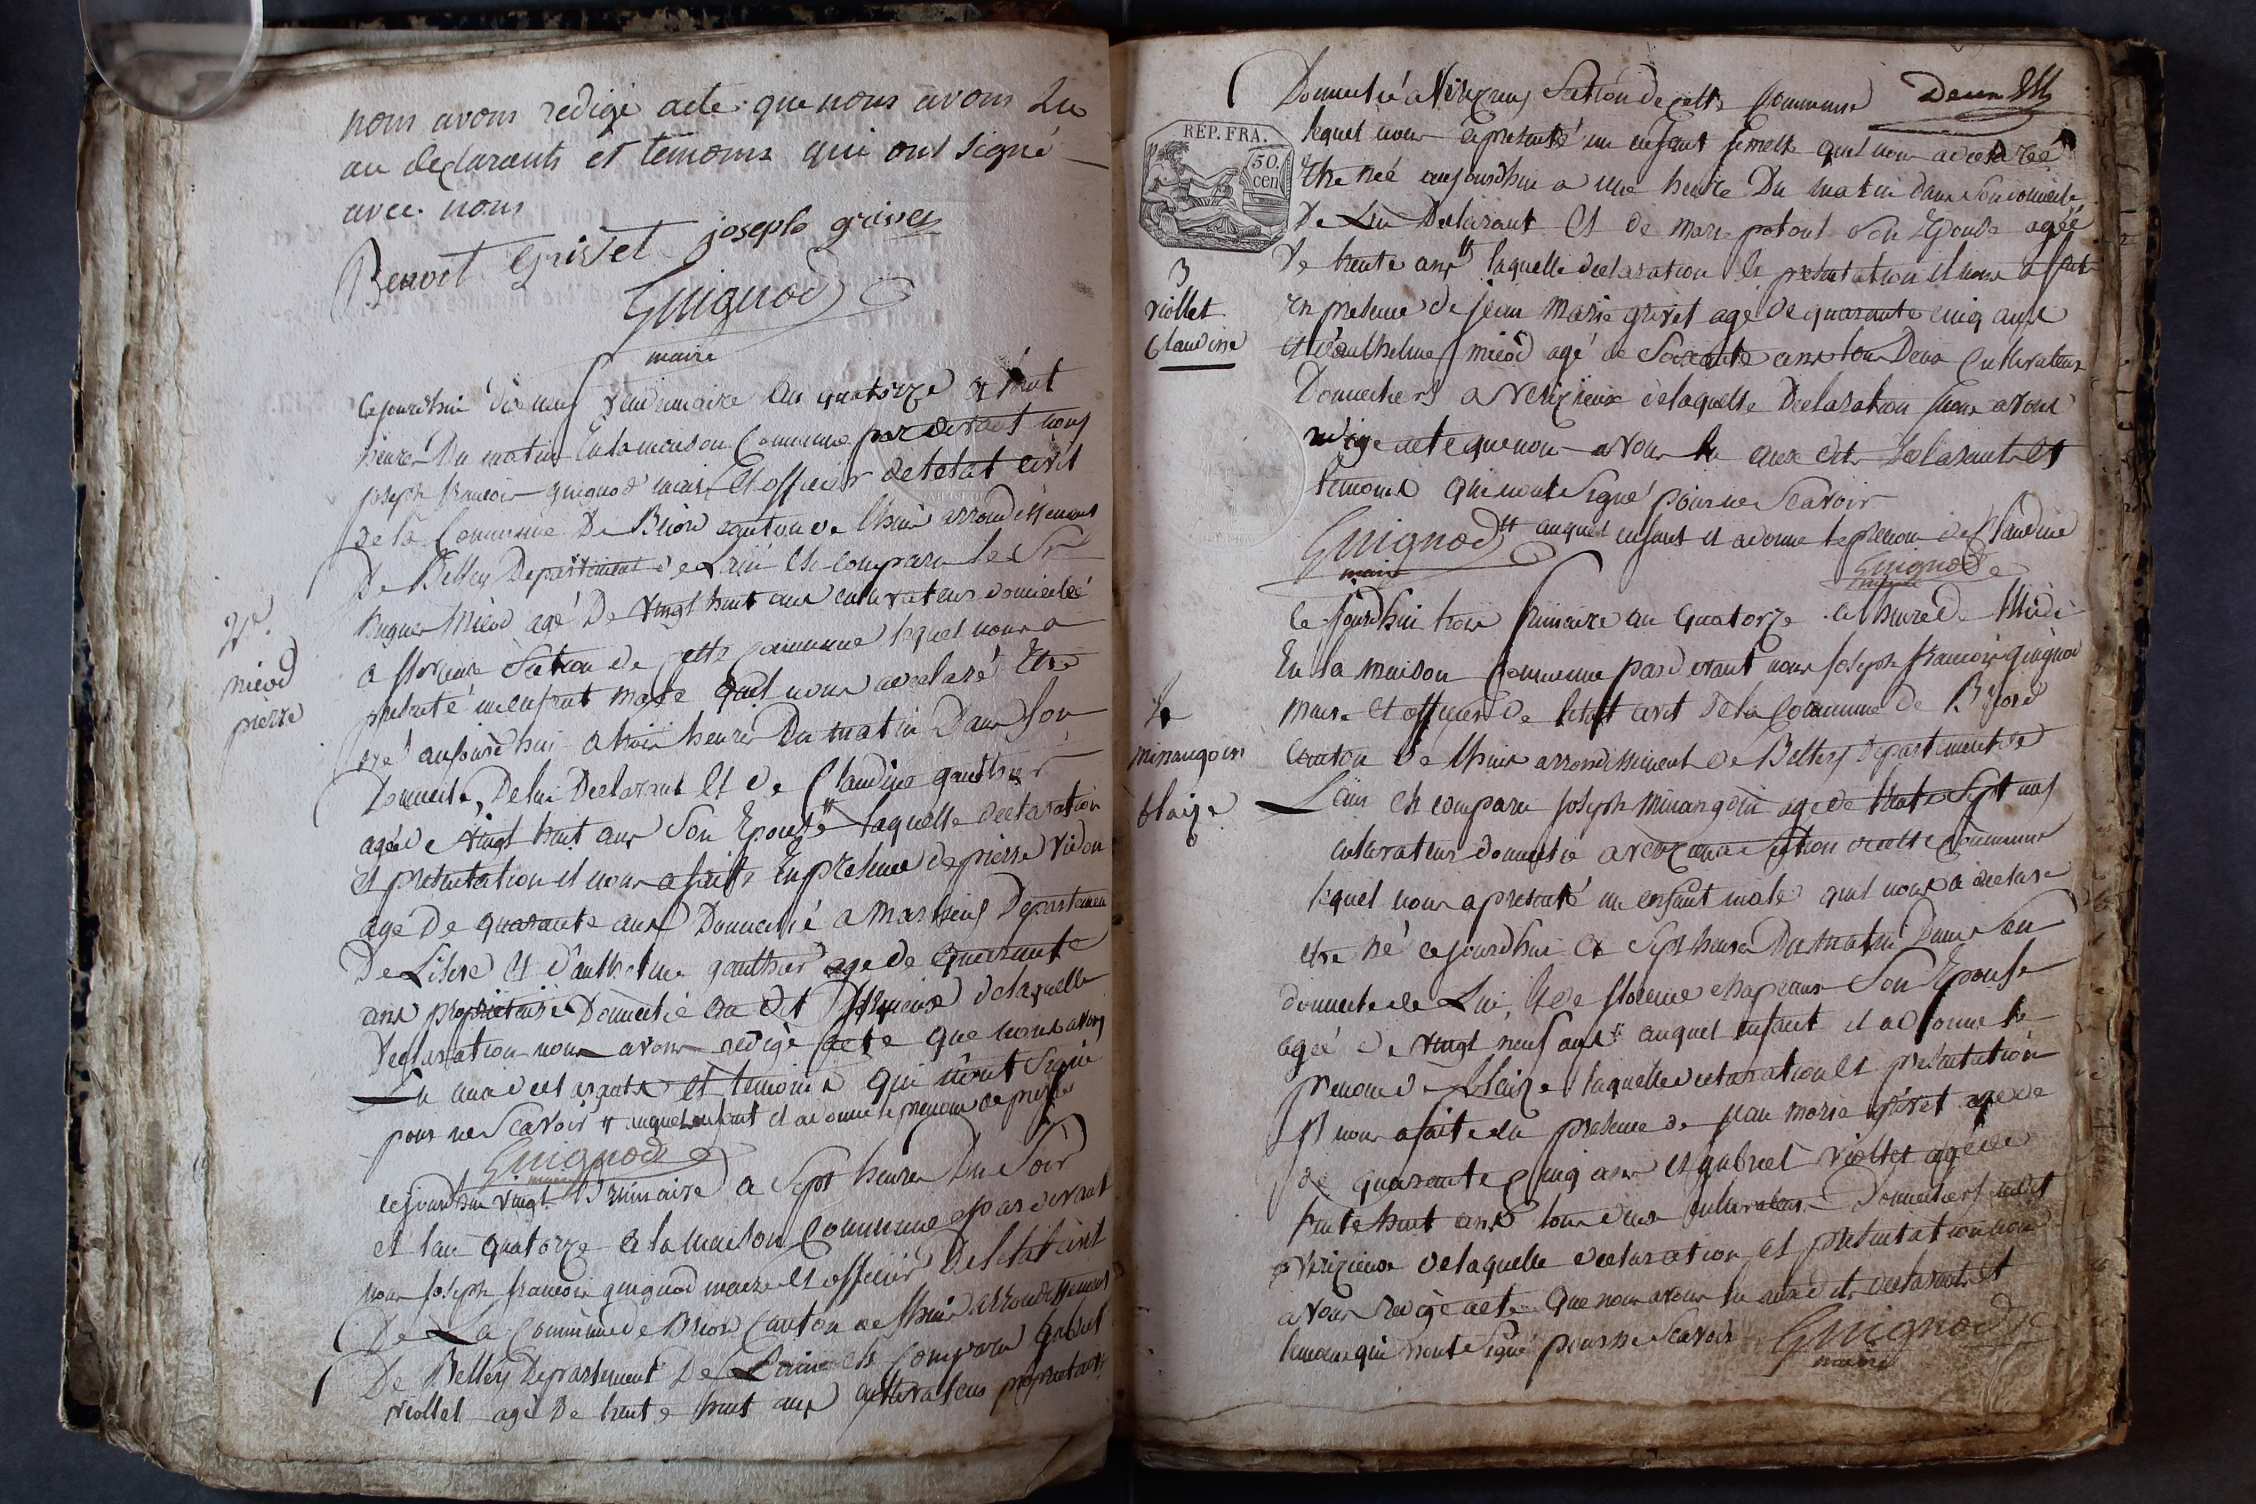 nous avons redigé acte que nous avons Lu
au declarants et temoins qui ont signé
avec nous
Benoit Grivet joseph grivet
Guignod
maire
2e
miéod
pierre
cejourdhui dix neuf vendemiaire an quatorze a huit
heures du matin En la maison Commune par devant nous
joseph francois guignod maire Et officier de letat civil
de la Commune De Brior canton de lhuis arrondissement
De Belley Departement de Lain Est comparu le Sr
miéod agé De vingt huit ans cultivateur domicilié
a Section de Cette Commune lequel nous a
presenté un enfant male quil nous a declaré Etre
né aujourdhui a trois heures Du matin Dans Son
Domicile, De lui Declarant Et de Claudine gauthier
agée de vingt huit ans Son Epouse laquelle declaration
Et presentation il nous a faite En presence de pierre
agé De quarante ans Domicilié a Departement
De Lisere Et d'anthelme gauthier agé de quarante
ans proprietaire Domicilié au dit delaquelle
Declaration nous avons redigé acte que nous avons
Lu aux declarants Et temoins qui n'ont Signé
pour ne Scavoir auquel enfant il a donné le prenom de pierre
Guignod
maire
cejourdhui vingt Brumaire a Sept heures Du Soir
et lan quatorze a la maison Commune par devant
nous Joseph francois guignod maire Et officier De letat civil
De La Commune de Brior Canton de lhuis arrondissement
De Belley Departement De Lain est Comparu gabriel
viollet agé De trente huit ans cultivateur proprietaire
Domicilié a Section de cette Commune Deux
REP. FRA.
50
cen
3
viollet
Claudine
lequel nous a presenté un enfant femelle quil nous a declaré
Etre née aujourdhui a une heure Du matin dans Son domicile
De Lui Declarant Et de marie Son Epouse agée
De trente ans laquelle declaration Et presentation il nous a faite
en presence de jean marie grivet agé de quarante cinq ans
Et d'anthelme miéod agé de Soixante ans tous Deux Cultivateurs
Domiciliers a delaquelle Declaration nous avons
redigé acte que nous avons lu aux dits declarants et
temoins qui nont Signé pour ne Scavoir
Guignod auquel enfant il a donné le prenom de Claudine
maire Guignod
maire
ce jourdhui trois frimaire an quatorze a lheure de Midi
En la maison Commune pardevant nous Joseph francois guignod
maire Et officier de letat civil De la Commune de Briord
4
minangoin
blaize
Canton de lhuis arrondissement de Belley Departement de
Lain Est comparu Joseph minangoin agé de trente Sept ans
cultivateur domicilié a Section de cette Commune
lequel nous a presenté un enfant male quil nous a declaré
etre né cejourdhui a Sept heures Du matin Dans Son
domicile de Lui, Et de florence Son Epouse
agée de vingt neuf ans auquel enfant il a donné le
prenom de blaize laquelle declaration Et presentation
il nous a faite en presence de jean marie grivet agé de
de quarante Cinq ans et gabriel viollet agé de
trente huit ans tous deux cultivateurs Domiciliers
delaquelle declaration Et presentation nous
avons redigé acte que nous avons lu aux dits declarants Et
temoins qui nont Signé pour ne Scavoir Guignod
maire